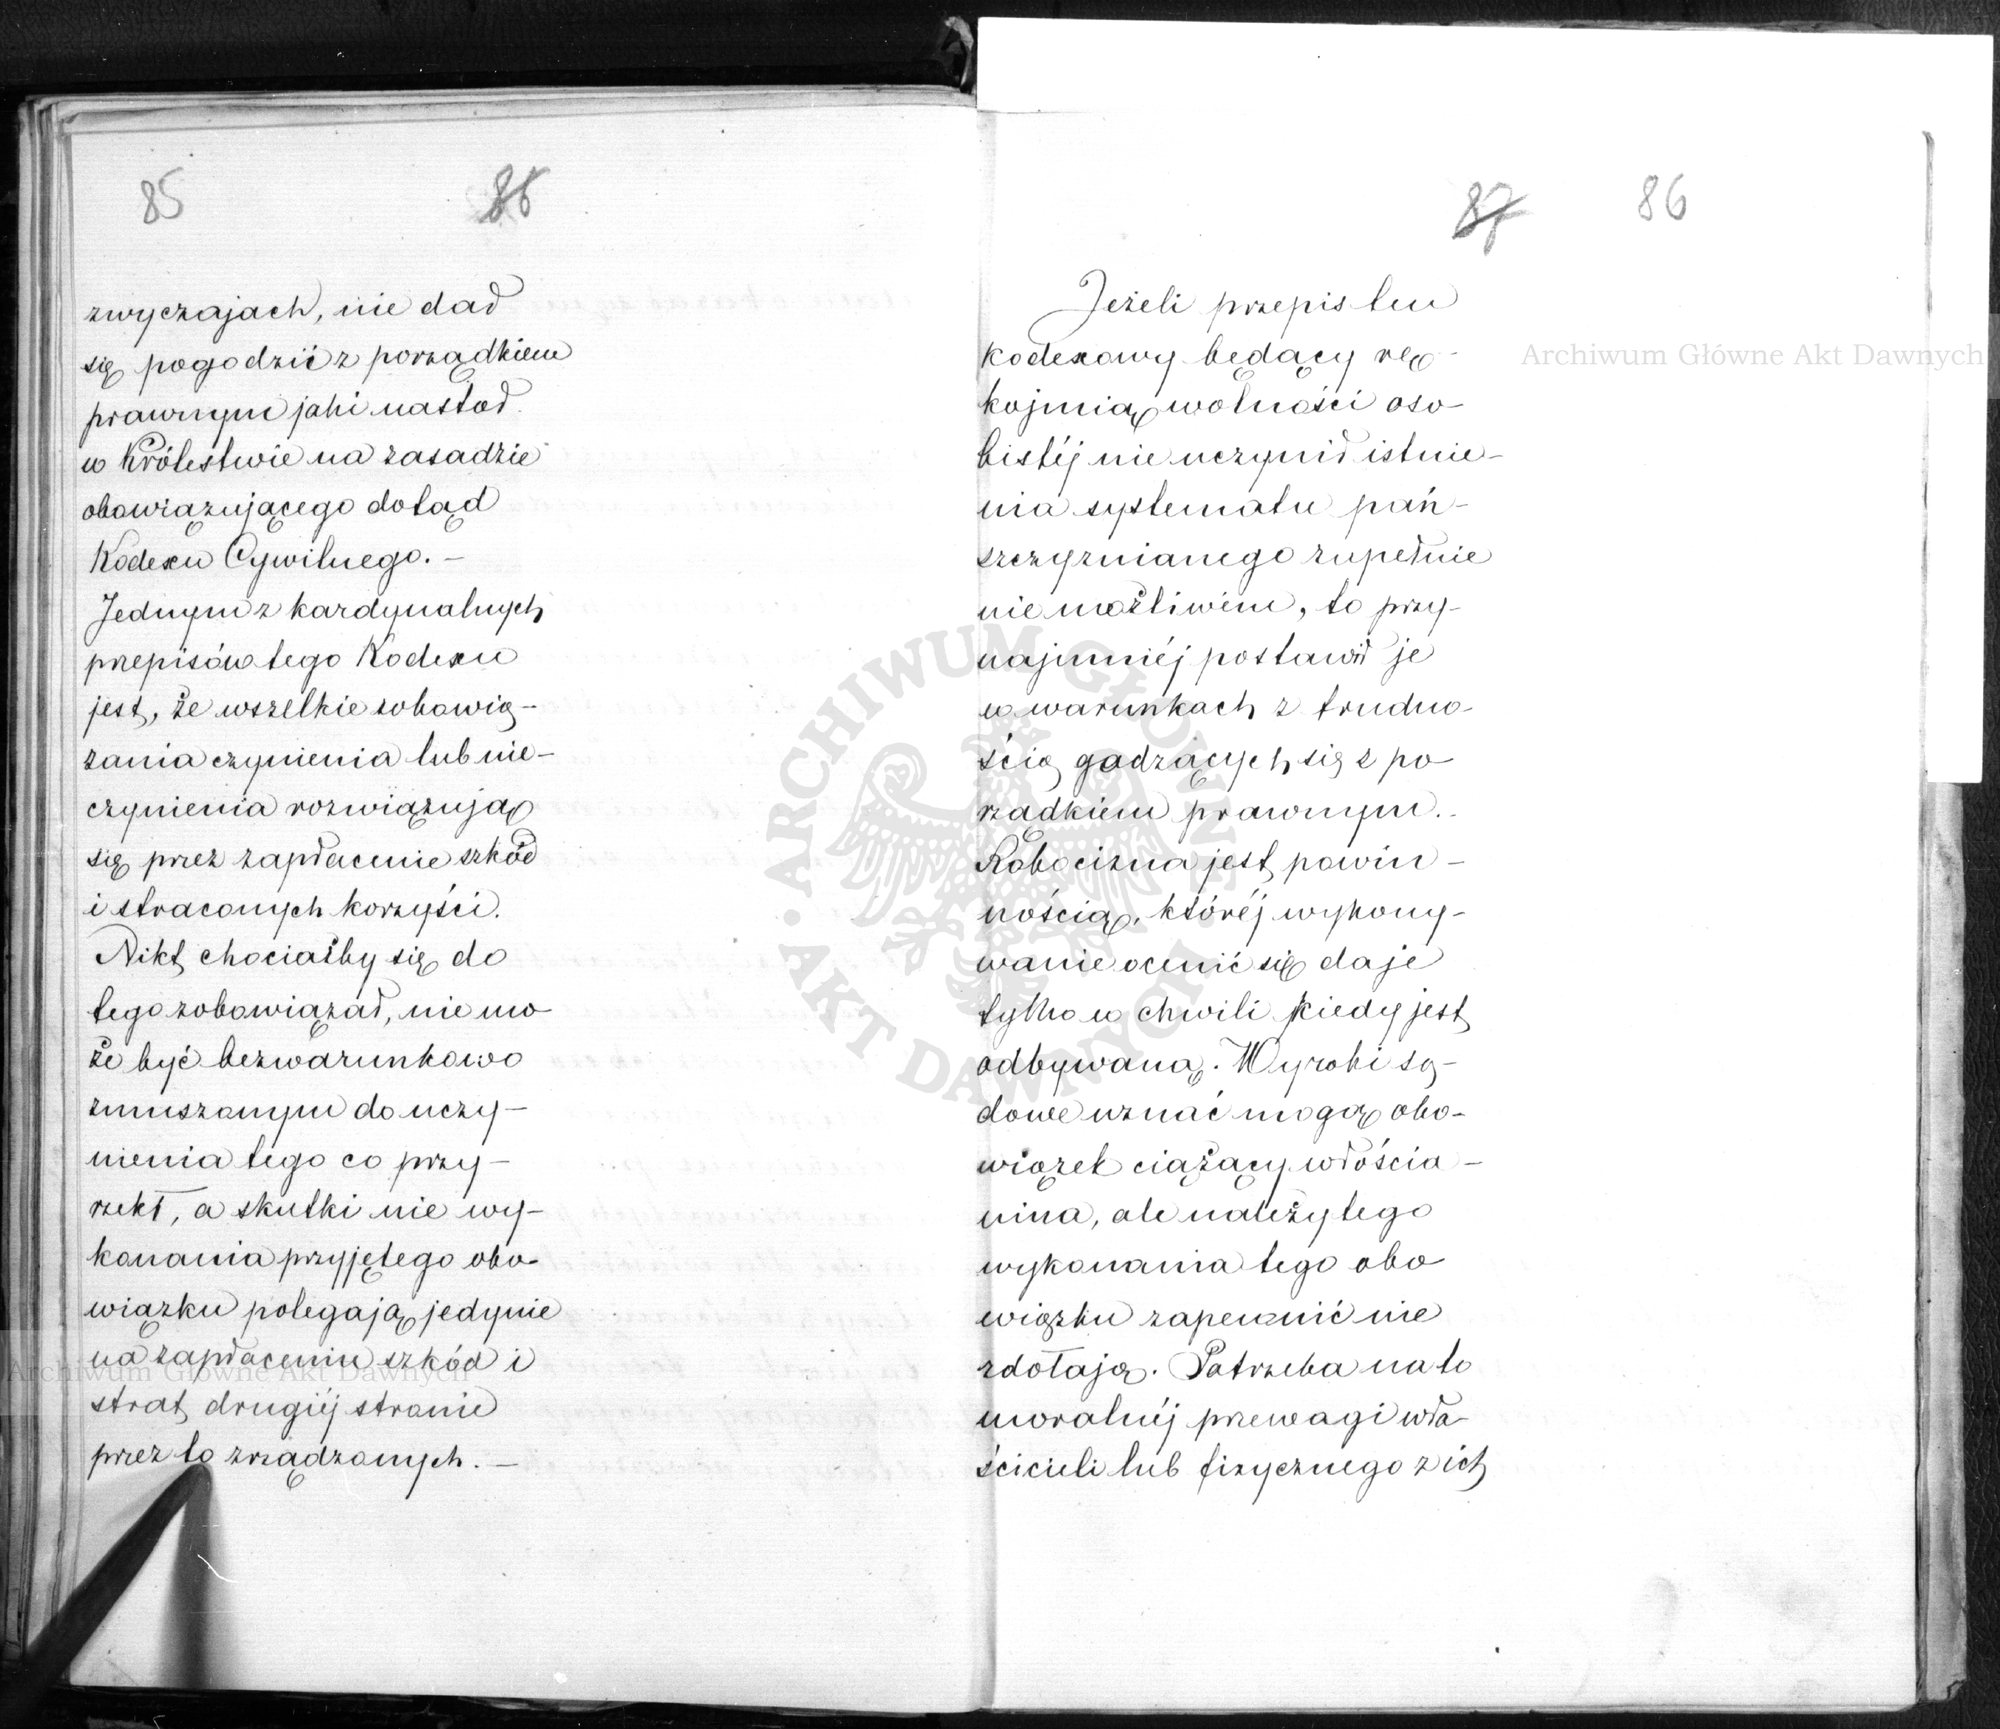 85 86
zwyczajach, nie dał
się pogodzić z porządkiem
prawnym jaki nastał
w Królestwie na zasadzie
obowiązującego dotąd
Kodexu Cywilnego. —
Jednym z kardynalnych
przepisów tego Kodexu
jest, że wszelkie zobowią-
zania czynienia lub nie-
czynienia rozwiązują
się przez zapłacenie szkód
i straconych korzyści.
Nikt chociażby się do
tego zobowiązał, nie mo
że być bezwarunkowo
zmuszonym do uczy-
nienia tego co przy-
rzekł, a skutki nie wy-
konania przyjętego obo-
wiązku polegają jedynie
na zapłaceniu szkód i
strat drugiéj stronie
przez to zrządzonych. —
87 86
Jeżeli przepis ten
kodexowy będący rę-
kojmią wolności oso-
bistéj nie uczynił istnie-
nia systematu pań-
szczyznianego zupełnie
nie możliwém, to przy-
najmniéj postawił je
w warunkach z trudno-
ścią godzących się z po
rządkiem prawnym. -
Robocizna jest powin-
nością, któréj wykony-
wanie ocenić się daje
tylko w chwili kiedy jest
odbywaną. Wyroki są-
dowe uznać mogą obo-
wiązek ciążący włościa-
nina, ale należytego
wykonania tego obo
wiązku zapewnić nie
zdołają. Potrzeba na to
moralnéj przewagi wła-
ścicieli lub fizycznego z ich
Archiwum Główne Akt Dawnych
Archiwum Główne Akt Dawnych
• ARCHIWUM GŁÓWNE • AKT DAWNYCH